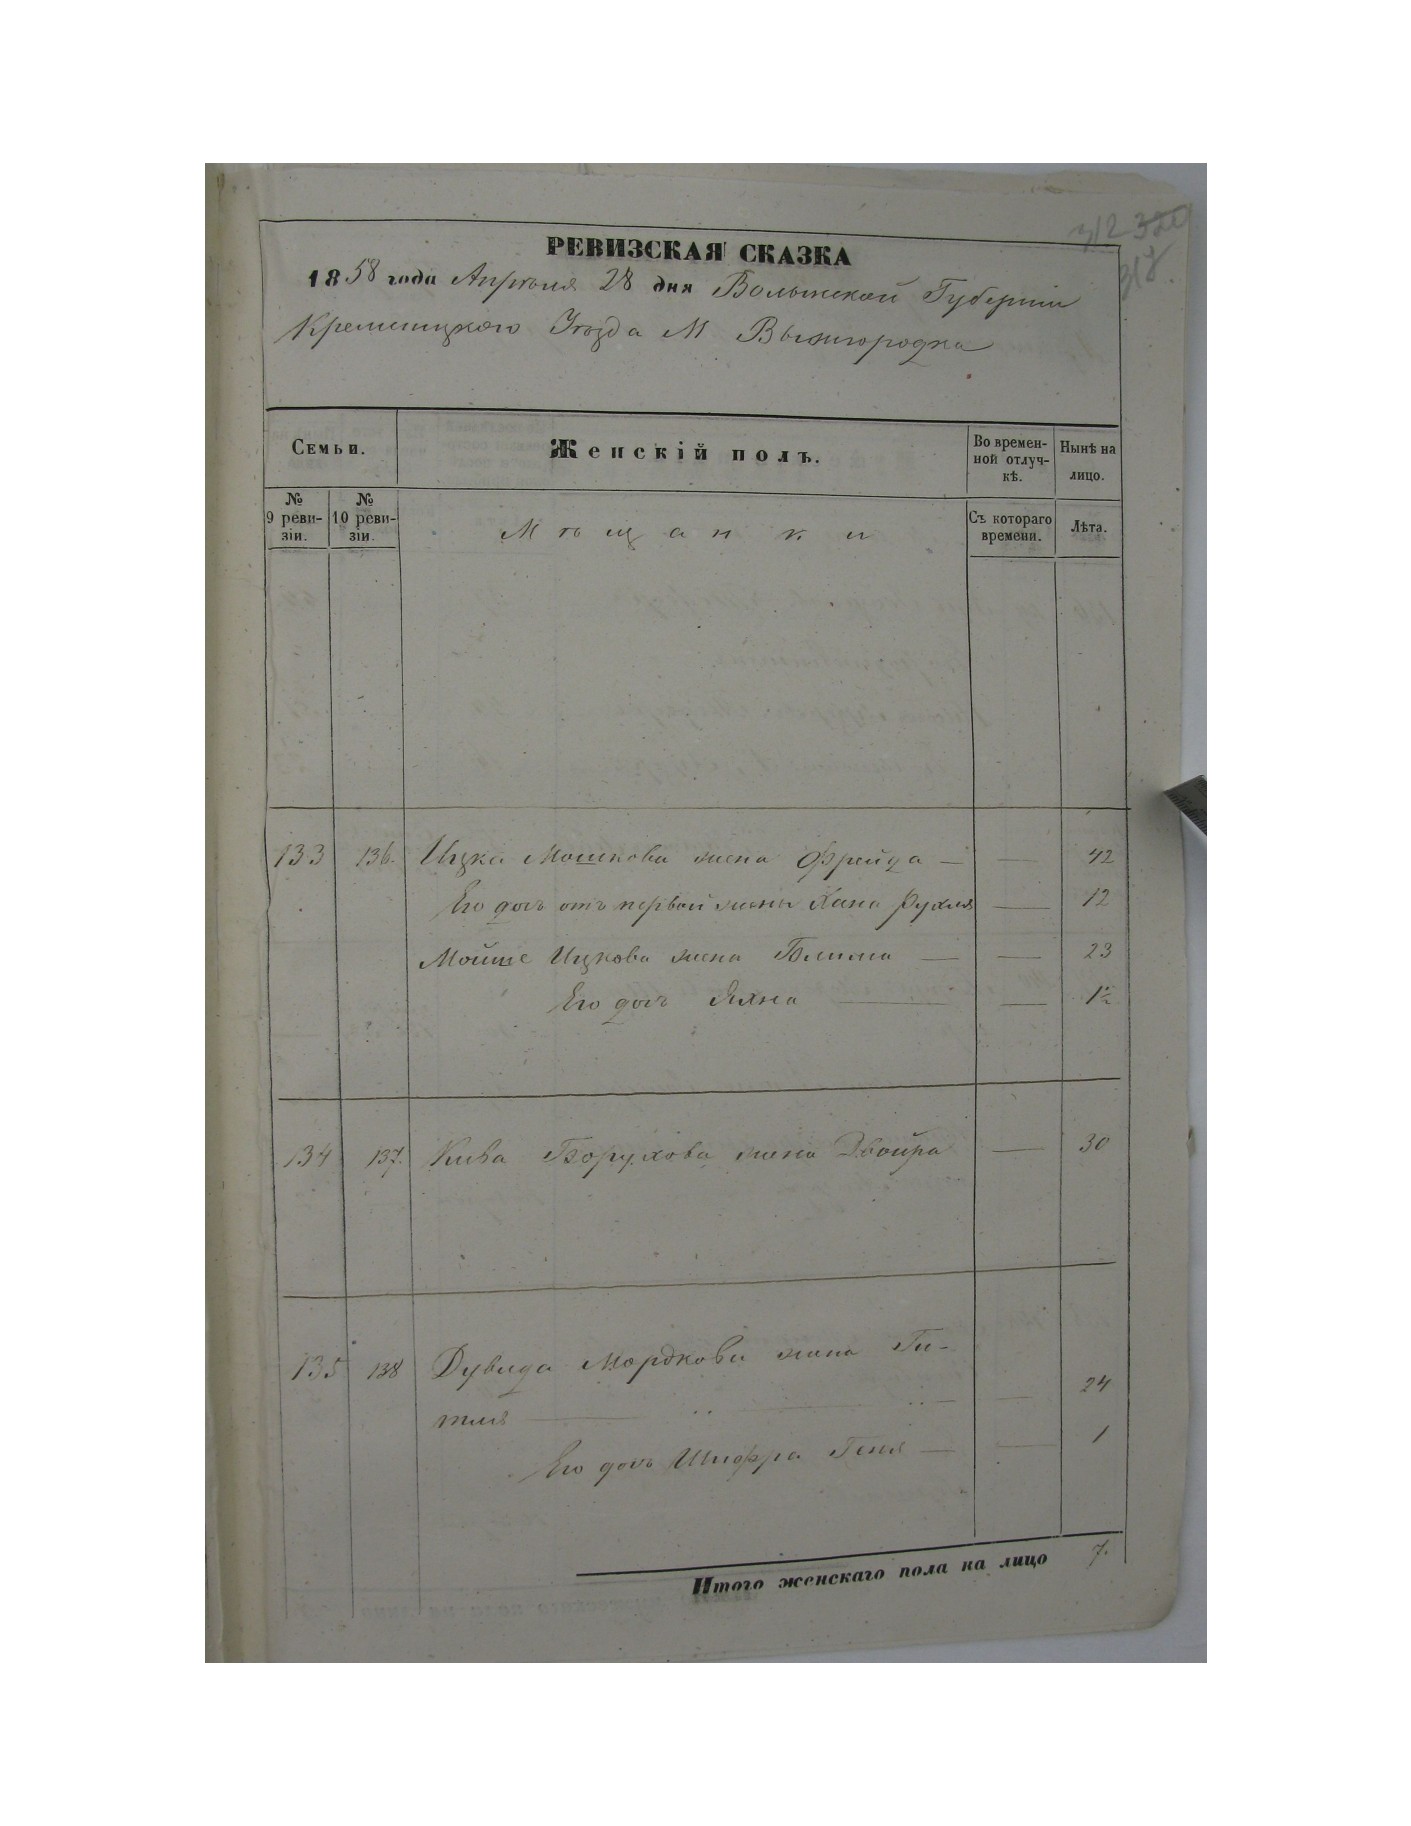 312 320
317.
РЕВИЗСКАЯ СКАЗКА
1858 года Апреля 28 дня Волынской Губерніи
Кременецкого Уѣзда М Вышгородка
Семьи.
Женскій полъ.
Во времен-
ной отлуч-
кѣ.
Нынѣ на
лицо.
№
9 реви-
зіи.
№
10 реви-
зіи.
Мѣщанки
Съ котораго
времени.
Лѣта.
133 136. Ицка Мошкова жена Фрейда — — 42
Его дочь отъ первой жены Хана Рухля — 12
Мойше Ицкова жена Блима — — 23
Его дочь Яхна — — 1½
134 137. Кива Борухова жена Двойра — 30
135 138 Дувида Мордкова жена Ги-
тля — „ — „ — — 24
Его дочь Шифра Геня — — 1
Итого женскаго пола на лицо 7.